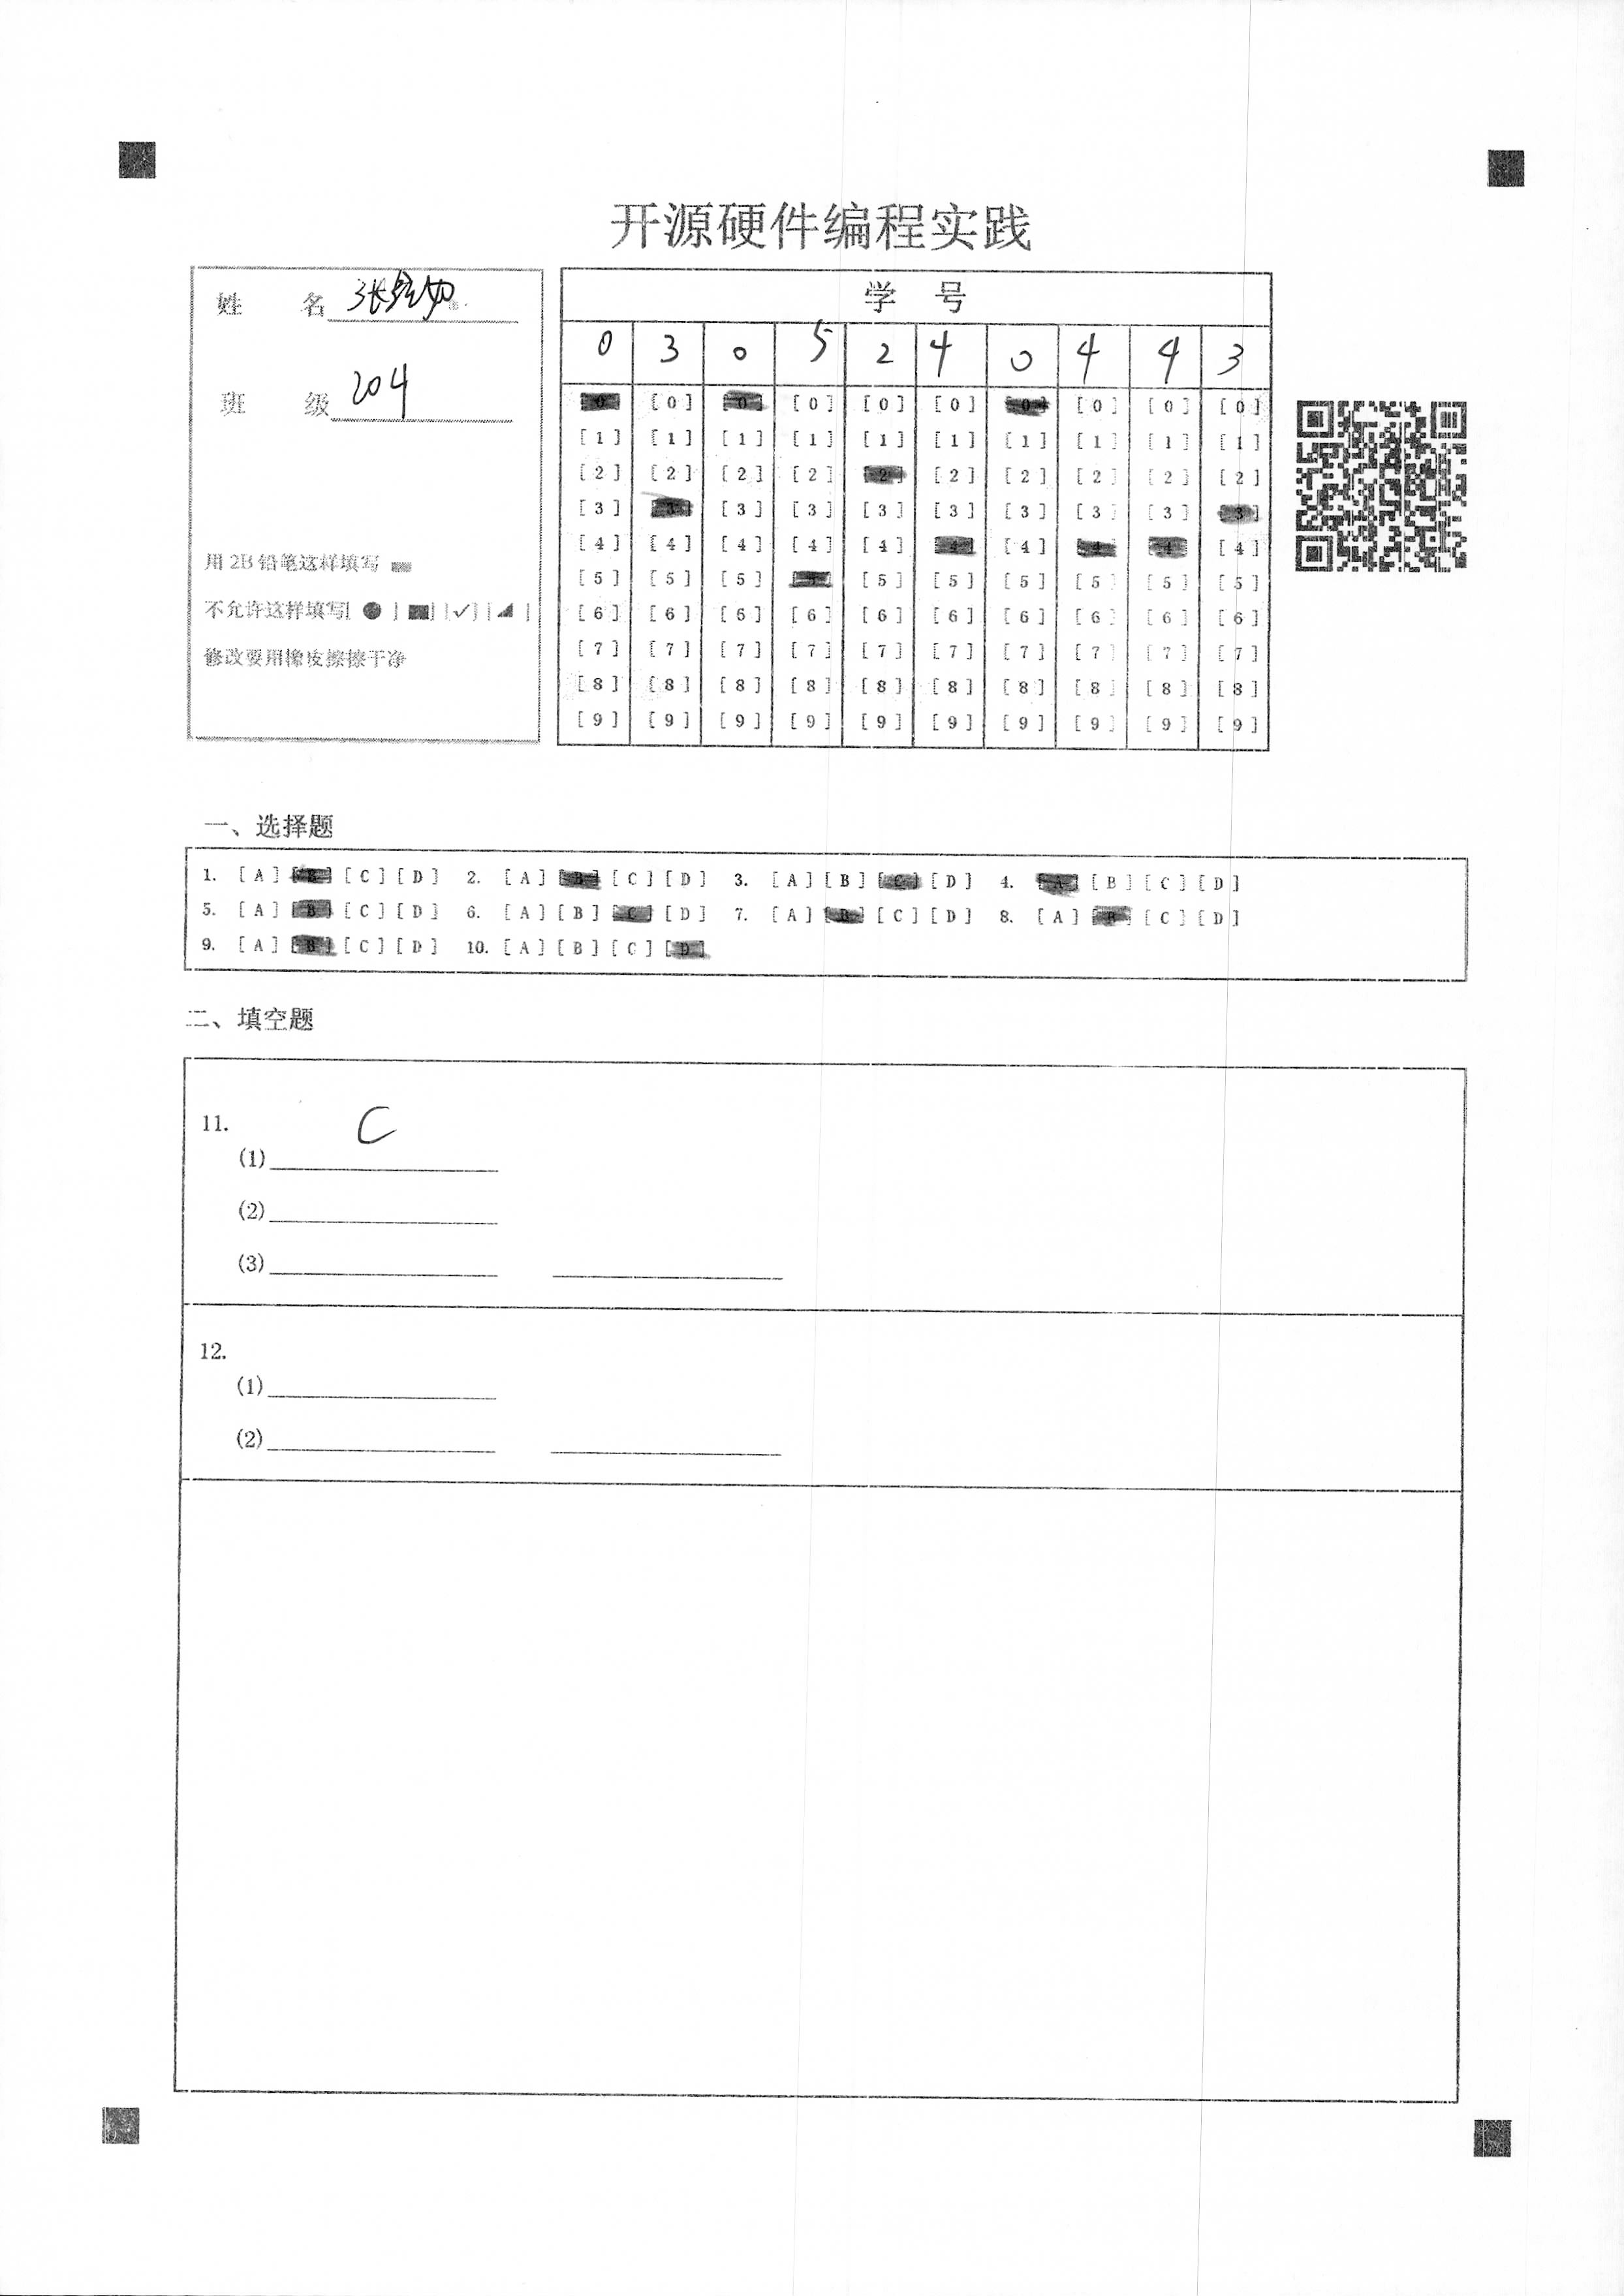 开源硬件编程实践
姓 名 张
班 级 204
用 2B 铅笔这样填写
不允许这样填写[ ● ] [■] [✓] [◢ ]
修改要用橡皮擦擦干净
学 号
0 3 0 5 2 4 0 4 4 3
[0] [0] [0] [0] [0] [0] [0] [0] [0] [0]
[1] [1] [1] [1] [1] [1] [1] [1] [1] [1]
[2] [2] [2] [2] [2] [2] [2] [2] [2] [2]
[3] [3] [3] [3] [3] [3] [3] [3] [3] [3]
[4] [4] [4] [4] [4] [4] [4] [4] [4] [4]
[5] [5] [5] [5] [5] [5] [5] [5] [5] [5]
[6] [6] [6] [6] [6] [6] [6] [6] [6] [6]
[7] [7] [7] [7] [7] [7] [7] [7] [7] [7]
[8] [8] [8] [8] [8] [8] [8] [8] [8] [8]
[9] [9] [9] [9] [9] [9] [9] [9] [9] [9]
一、选择题
1. [A] [B] [C] [D] 2. [A] [B] [C] [D] 3. [A] [B] [C] [D] 4. [A] [B] [C] [D]
5. [A] [B] [C] [D] 6. [A] [B] [C] [D] 7. [A] [B] [C] [D] 8. [A] [B] [C] [D]
9. [A] [B] [C] [D] 10. [A] [B] [C] [D]
二、填空题
11.
(1) C
(2)
(3)
12.
(1)
(2)